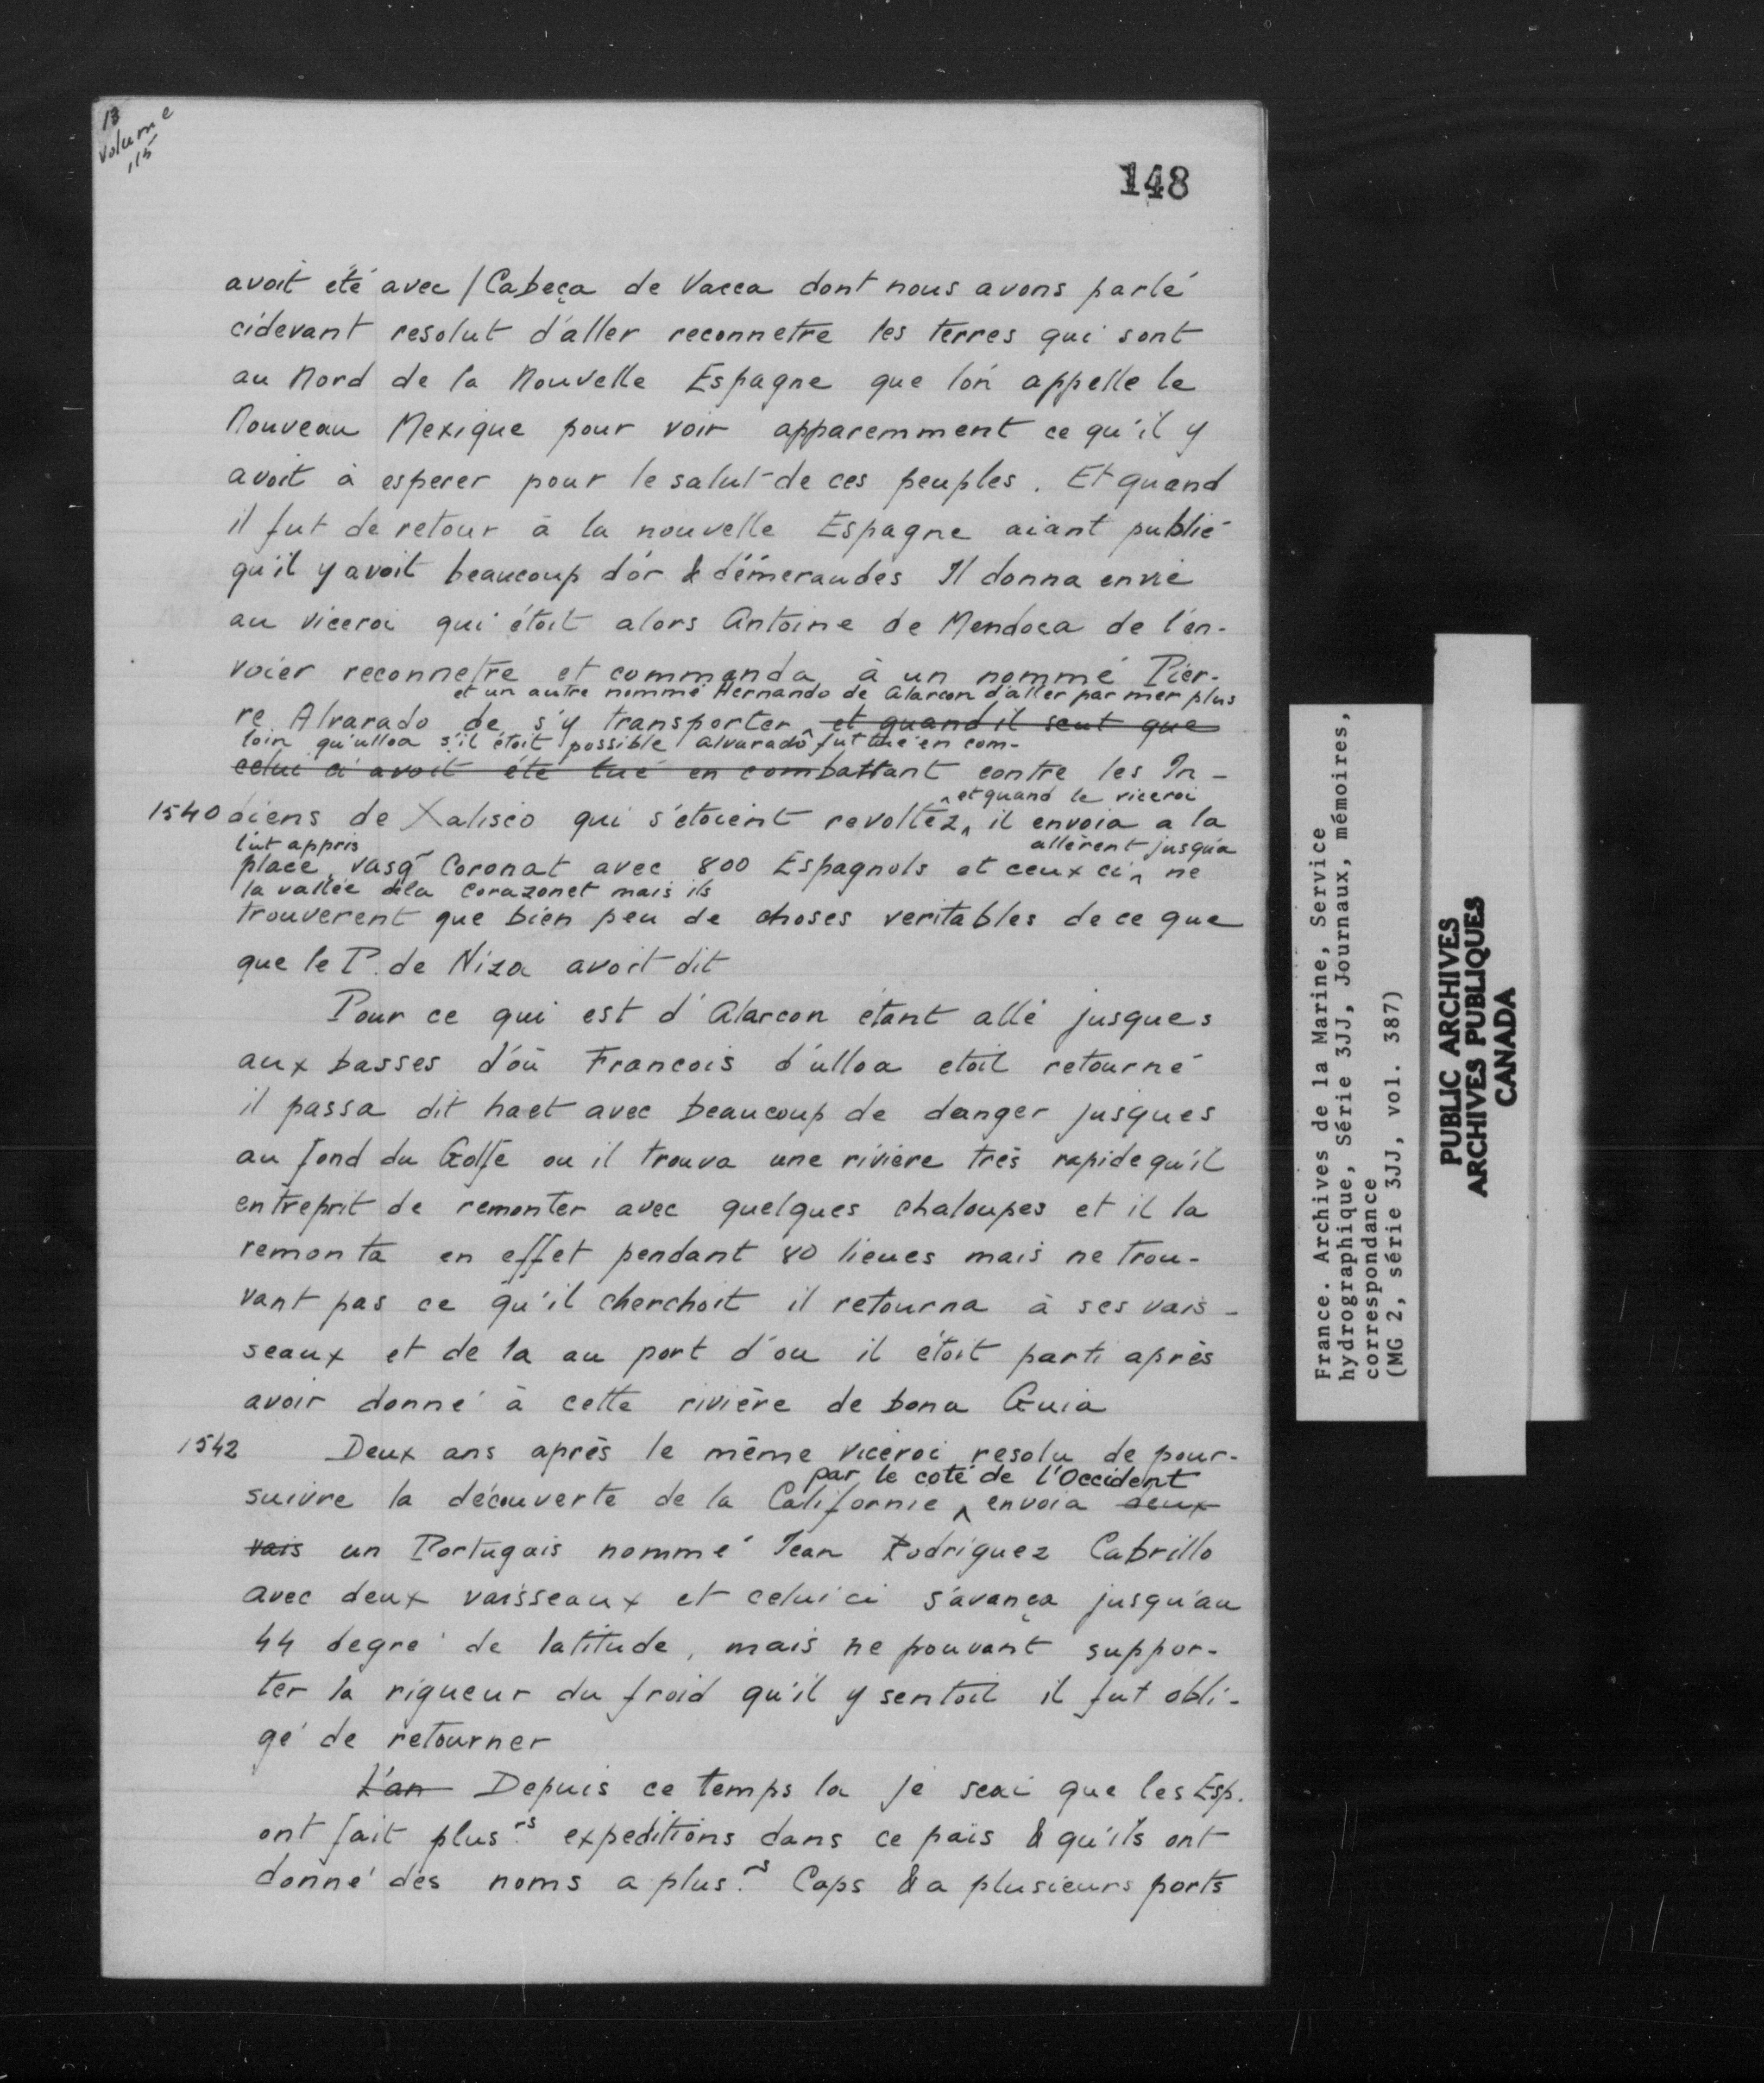 13
volume
115
148
avoit été avec / Cabeça de Vacca dont nous avons parlé
cidevant resolut d'aller reconnetre les terres qui sont
au Nord de la Nouvelle Espagne que lon appelle le
Nouveau Mexique pour voir apparemment ce qu'il y
avoit à esperer pour le salut de ces peuples. Et quand
il fut de retour à la nouvelle Espagne aiant publié
qu'il y avoit beaucoup d'or & d'émeraudes Il donna envie
au viceroi qui étoit alors Antoine de Mendoca de l'en-
voier reconnetre et commanda à un nommé Pier-
et un autre nommé Hernando de Alarcon d'aller par mer plus
re Alvarado de s'y transporter ^ et quand il scut que
loin qu'ulloa s'il étoit possible alvarado fut tué en com-
celui ci avoit été tué en combattant contre les In-
^ et quand le viceroi
1540 diens de Xalisco qui s'étoient revoltéz ^ il envoia a la
l'ut appris
allèrent jusqu'a
place vasq Coronat avec 800 Espagnols et ceux ci ^ ne
la vallée dela Corazonet mais ils
trouverent que bien peu de choses veritables de ce que
que le P. de Niza avoit dit
Pour ce qui est d'Alarcon étant allé jusques
aux basses d'où Francois d'ulloa etoit retourné
il passa dit haet avec beaucoup de danger jusques
au fond du Golfe ou il trouva une rivière très rapide qu'il
entreprit de remonter avec quelques chaloupes et il la
remonta en effet pendant 80 lieues mais ne trou-
vant pas ce qu'il cherchoit il retourna à ses vais-
seaux et de la au port d'ou il étoit parti après
avoir donné à cette rivière de bona Guia
1542 Deux ans après le même viceroi resolu de pour-
par le coté de l'Occident
suivre la découverte de la Californie ^ envoia deux
vais un Portugais nommé Jean Rodriguez Cabrillo
avec deux vaisseaux et celui ci s'avança jusqu'au
44 degré de latitude, mais ne pouvant suppor-
ter la rigueur du froid qu'il y sentoit il fut obli-
gé de retourner
L'an Depuis ce temps la je scai que les Esp.
ont fait plus.rs expeditions dans ce païs & qu'ils ont
donné des noms a plus.rs Caps & a plusieurs ports
France. Archives de la Marine, Service
hydrographique, Série 3JJ, Journaux, mémoires,
correspondance
(MG 2, série 3JJ, vol. 387)
PUBLIC ARCHIVES
ARCHIVES PUBLIQUES
CANADA